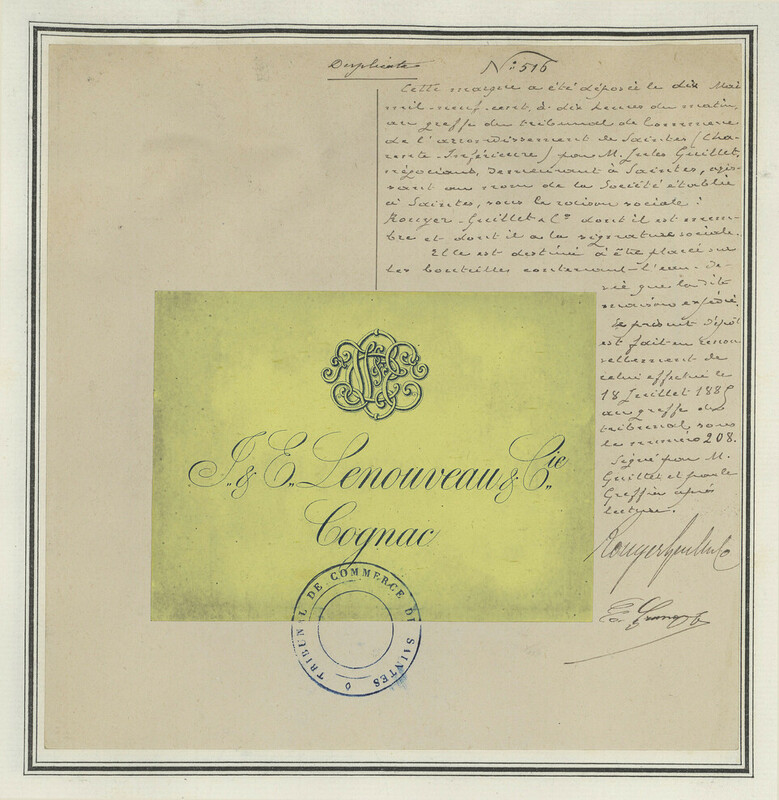 Duplicata
N° 516
Cette marque a été déposée le dix Mai
mil-neuf-cent, à dix heures du matin,
au greffe du tribunal de Commerce
de l'arrondissement de Saintes (Cha-
rente-Inférieure) par M. Jules Guillet,
négociant, demeurant à Saintes, agis-
sant au nom de la Société établie
à Saintes, sous la raison sociale :
Rouyer-Guillet & Cie dont il est mem-
bre et dont il a la signature sociale.
Elle est destinée à être placée sur
les bouteilles contenant l'eau-de-
vie que la dite
maison expédie.
Le présent dépôt
est fait en renou-
vellement de
celui effectué le
18 Juillet 1885
au greffe du
tribunal sous
le numéro 208.
Signé par M.
Guillet et par le
Greffier après
lecture.
Rouyer Guillet & Co
J. & E. Lenouveau & Cie
Cognac
TRIBUNAL DE COMMERCE DE SAINTES